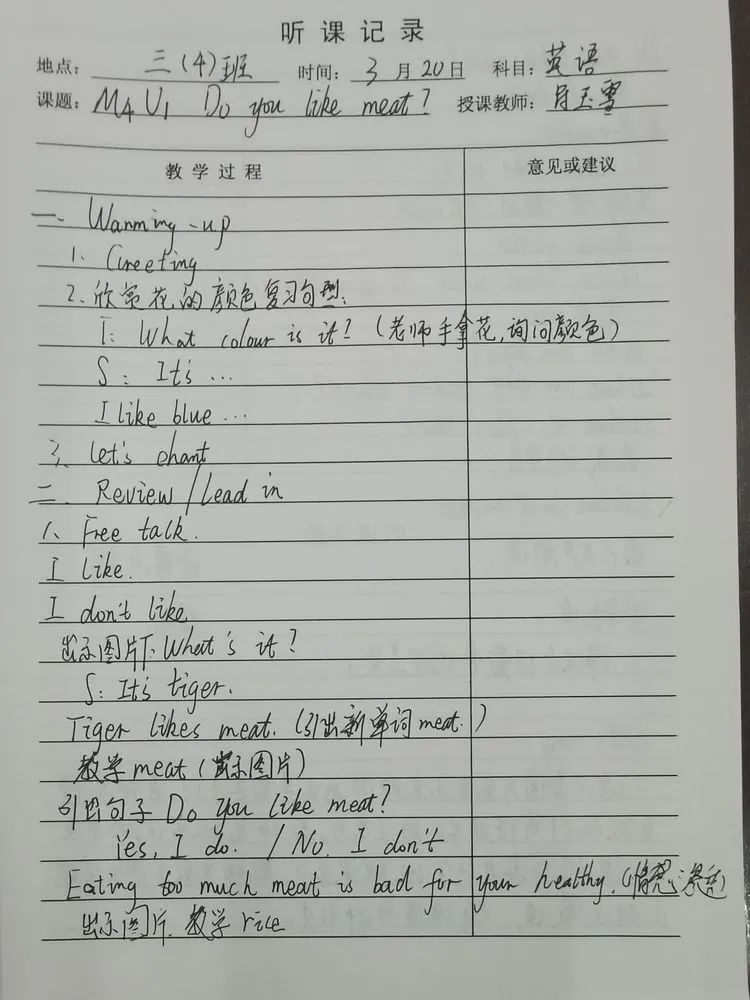 听课记录
地点: 三(4)班 时间: 3月20日 科目: 英语
课题: M4 U1 Do you like meat? 授课教师: 肖玉雪
教学过程 意见或建议
一. Warming-up
1. Greeting
2. 欣赏花的颜色复习句型:
T: What colour is it? (老师手拿花,询问颜色)
S: It's ...
I like blue ...
3. let's chant
二. Review/Lead in
1. Free talk.
I like.
I don't like
出示图片T: What's it?
S: It's tiger.
Tiger likes meat. (引出新单词meat.)
教学meat (出示图片)
引出句子 Do you like meat?
Yes, I do. / No, I don't
Eating too much meat is bad for your healthy. (情感渗透)
出示图片. 教学rice